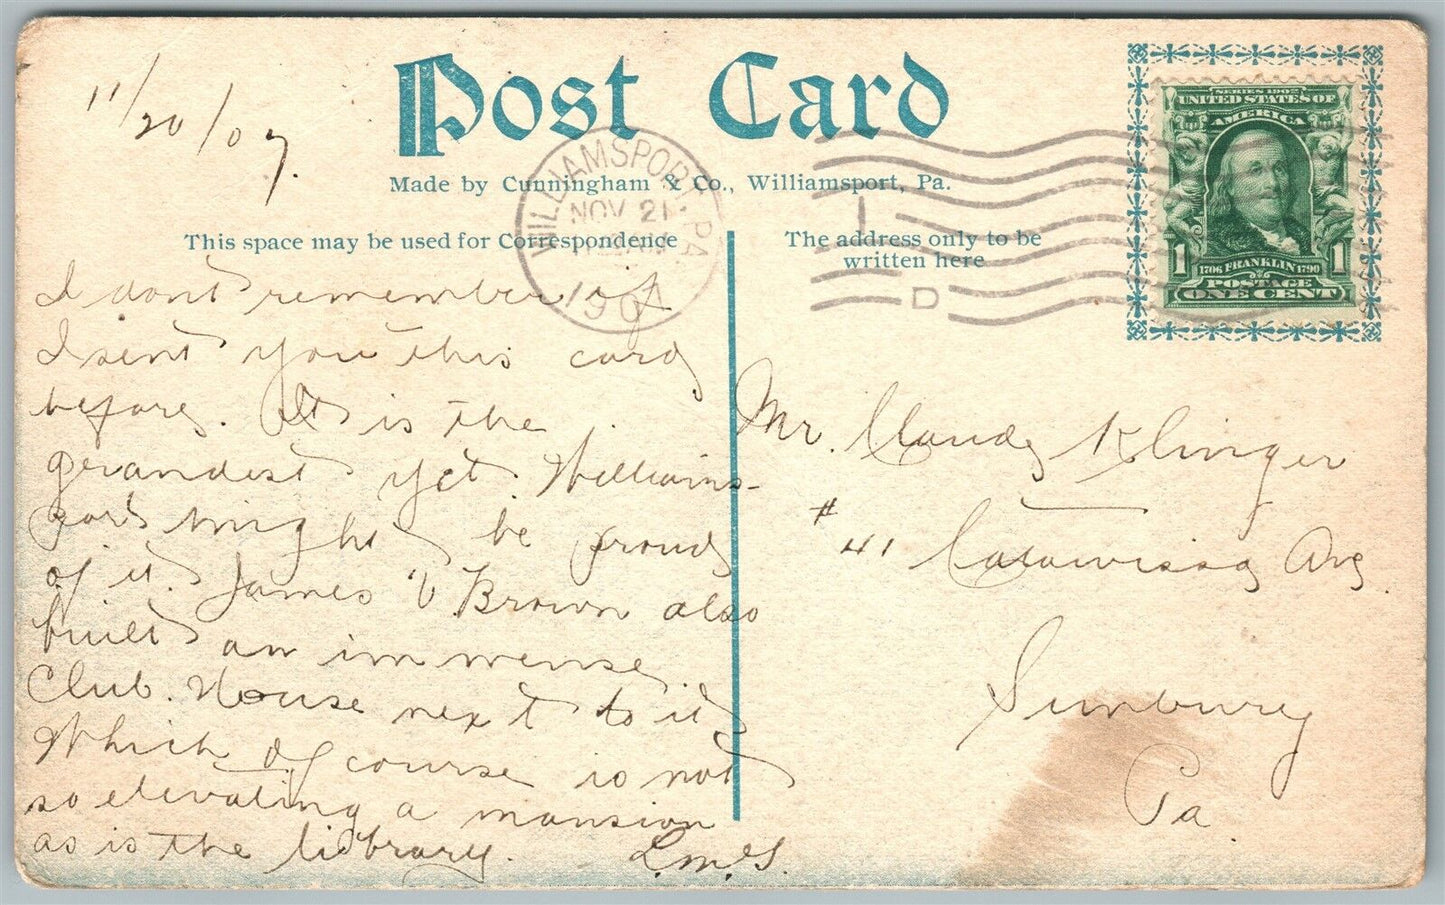 11/20/07.
Post Card
Made by Cunningham & Co., Williamsport, Pa.
WILLIAMSPORT, PA.
NOV 21
1907
D
SERIES 1902
UNITED STATES OF
AMERICA
1 1
1706 FRANKLIN 1790
POSTAGE
ONE CENT
This space may be used for Correspondence
The address only to be
written here
I dont remember if
I sent you this card
before. It is the
grandest yet. Williams-
port might be proud
of it. James V Brown also
built an immense
Club. House next to it
Which of course is not
so elevating a mansion
as is the library.
Mr. Claude Klinger
# 41 Catawissa Ave
Sunbury
Pa.